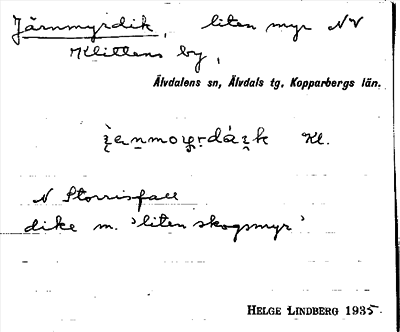 Järnmyrdik, liten myr NV
Klittens by,
Älvdalens sn, Älvdals tg, Kopparbergs län.
Kl.
N Storrisfall
dike m. 'liten skogsmyr'
HELGE LINDBERG 1935.